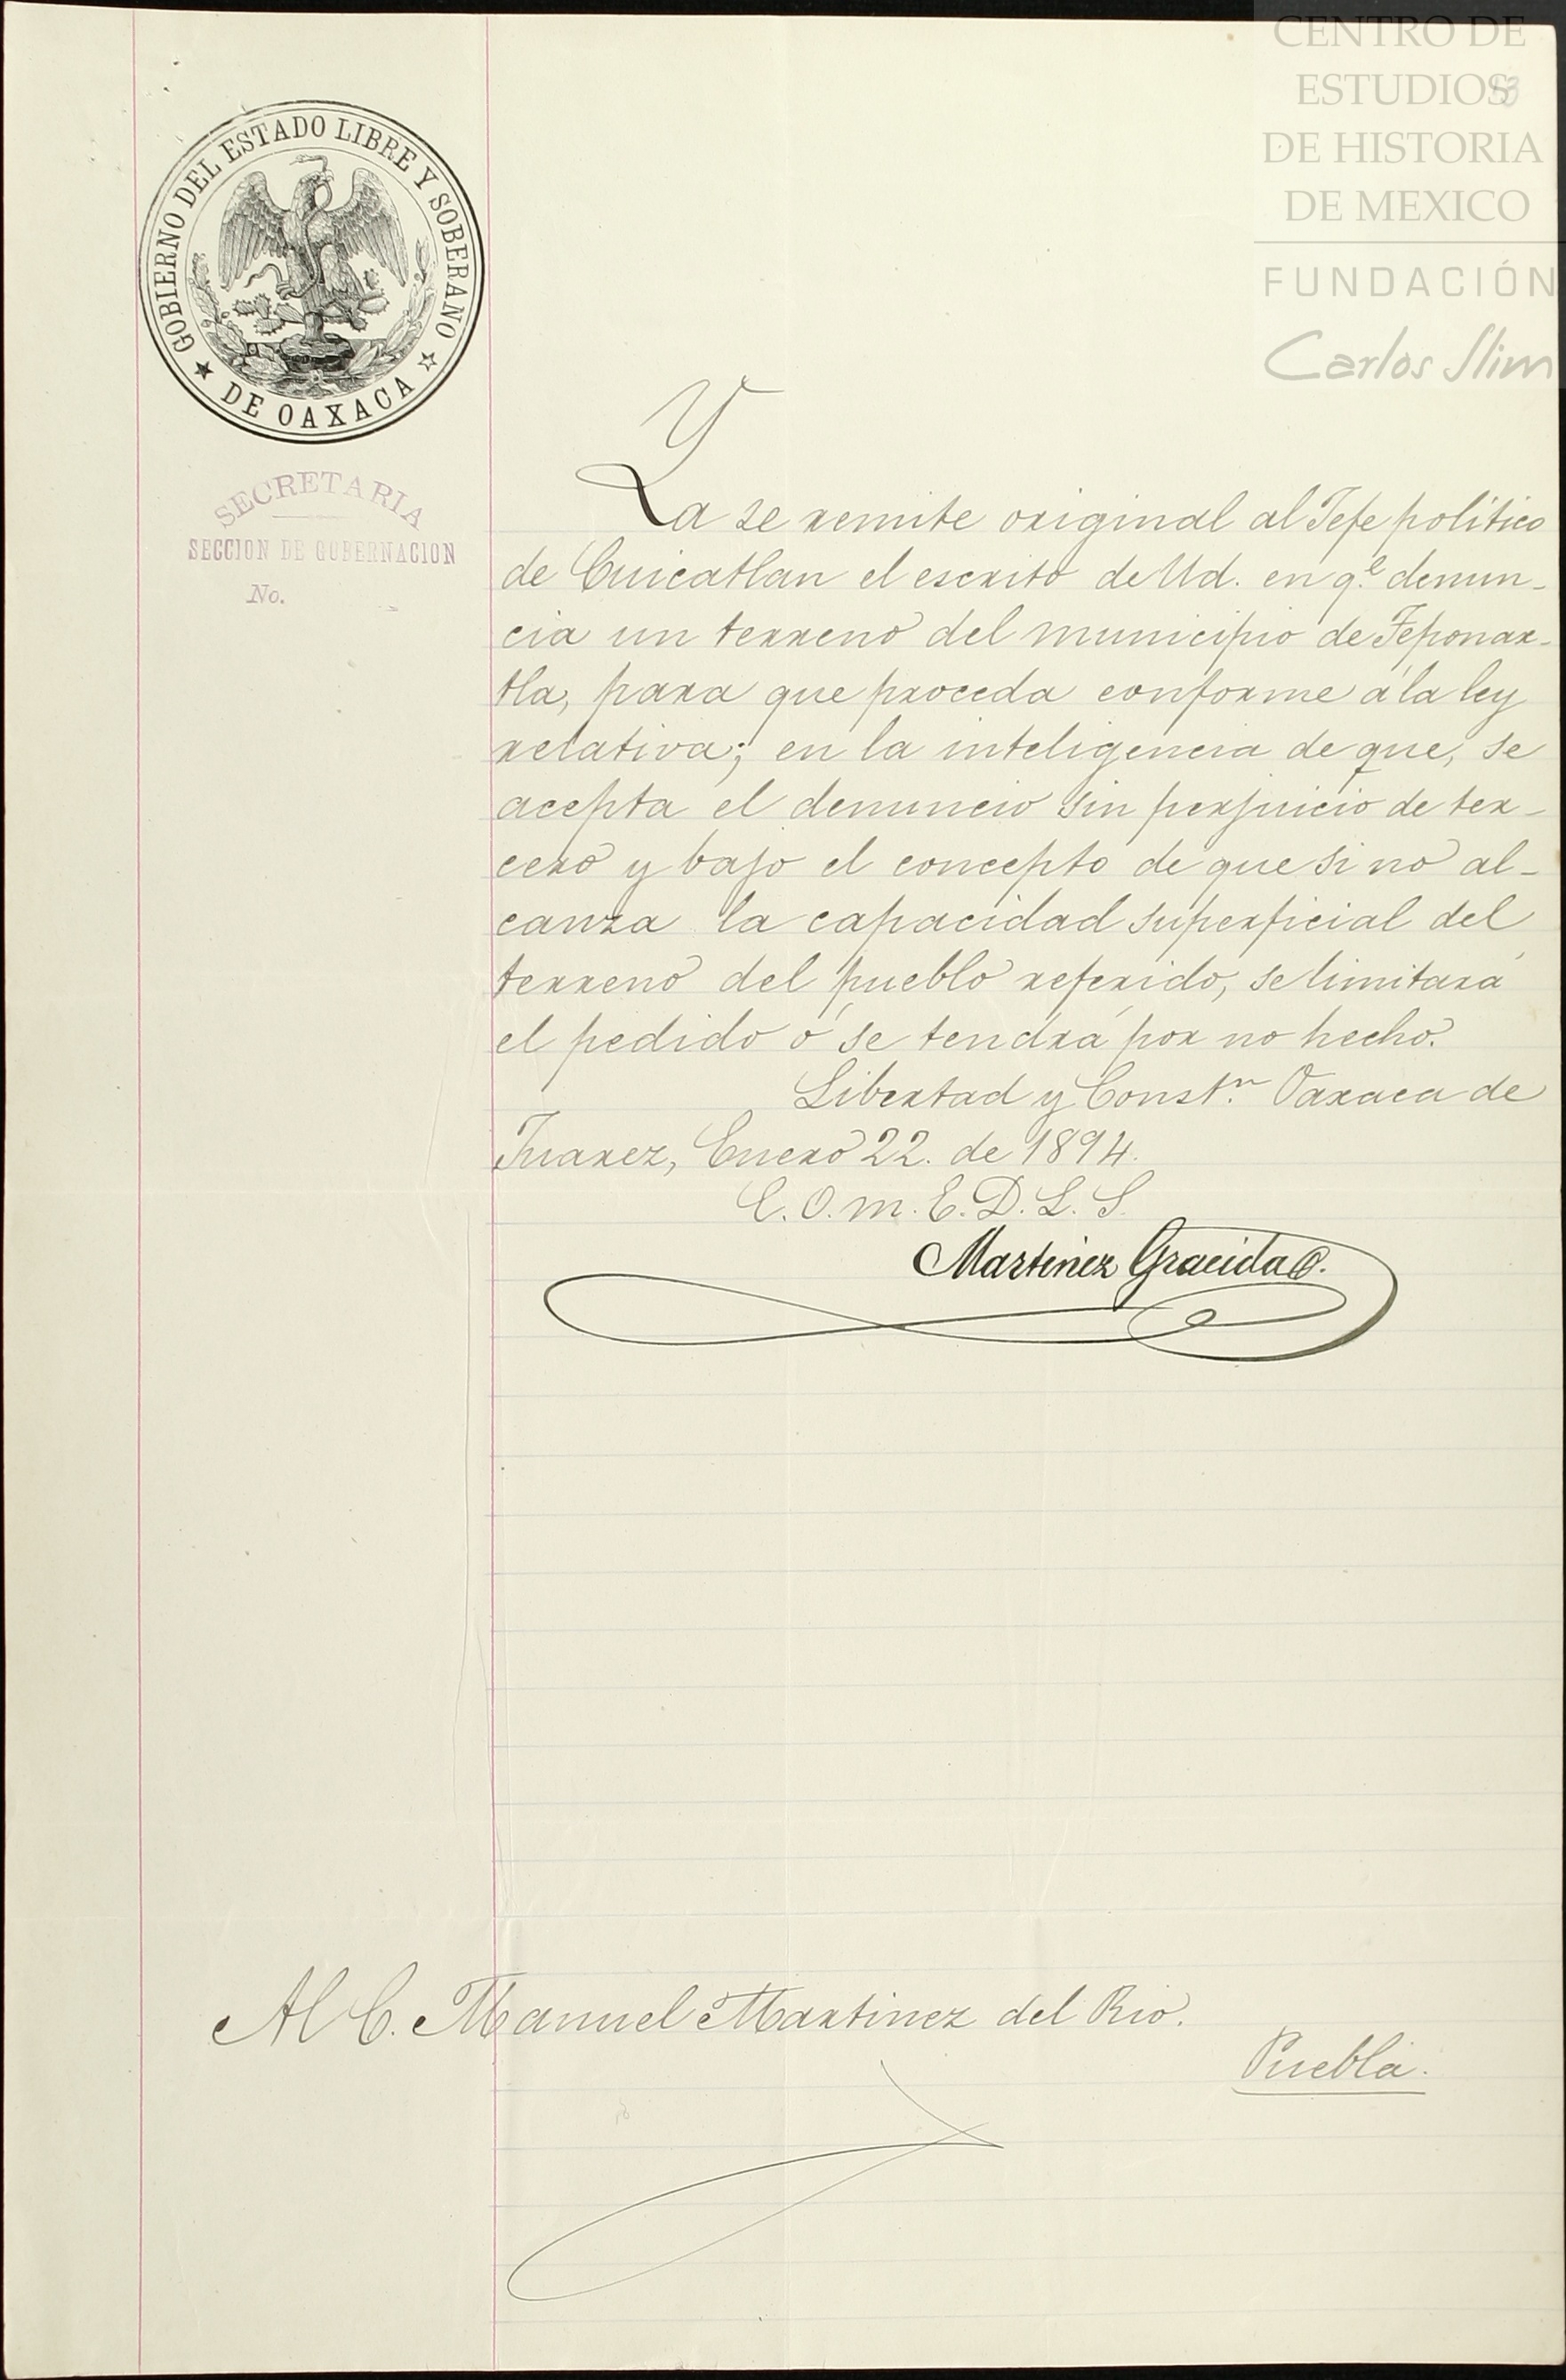 CENTRO DE
ESTUDIOS
DE HISTORIA
DE MEXICO
FUNDACIÓN
Carlos Slim
GOBIERNO DEL ESTADO LIBRE Y SOBERANO
DE OAXACA
SECRETARIA
SECCION DE GOBERNACION
No.
Ya se remite original al Jefe político
de Cuicatlan el escrito de Ud. en q.e denun-
cia un terreno del municipio de Teponax-
tla, para que proceda conforme á la ley
relativa; en la inteligencia de que, se
acepta el denuncio sin perjuicio de ter-
cero y bajo el concepto de que si no al-
canza la capacidad superficial del
terreno del pueblo referido, se limitará
el pedido ó se tendrá por no hecho.
Libertad y Const.n Oaxaca de
Juarez, Enero 22. de 1894.
E. O. M. E. D. L. S.
Martinez Gracida
Al C. Manuel Martinez del Rio.
Puebla.